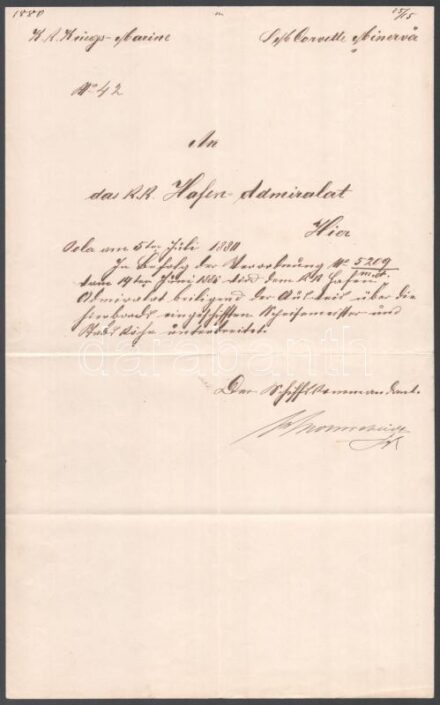 1880
K. K. Kriegs-Marine
S. M. Corvette Minerva
No 42
An
das K. K. Hafen-Admiralat
Hier
Pola am 5ten Juli 1880
In Befolg der Verordnung No 5209
vom 19ten Juni 1880 wird dem K. K. Hafen
Admiralat beiliegend der Ausweis über die
hierbords eingeschifften Schiffsmeister und
Stabsköche unterbreitet.
Der Schiffskommandant.
darabanth